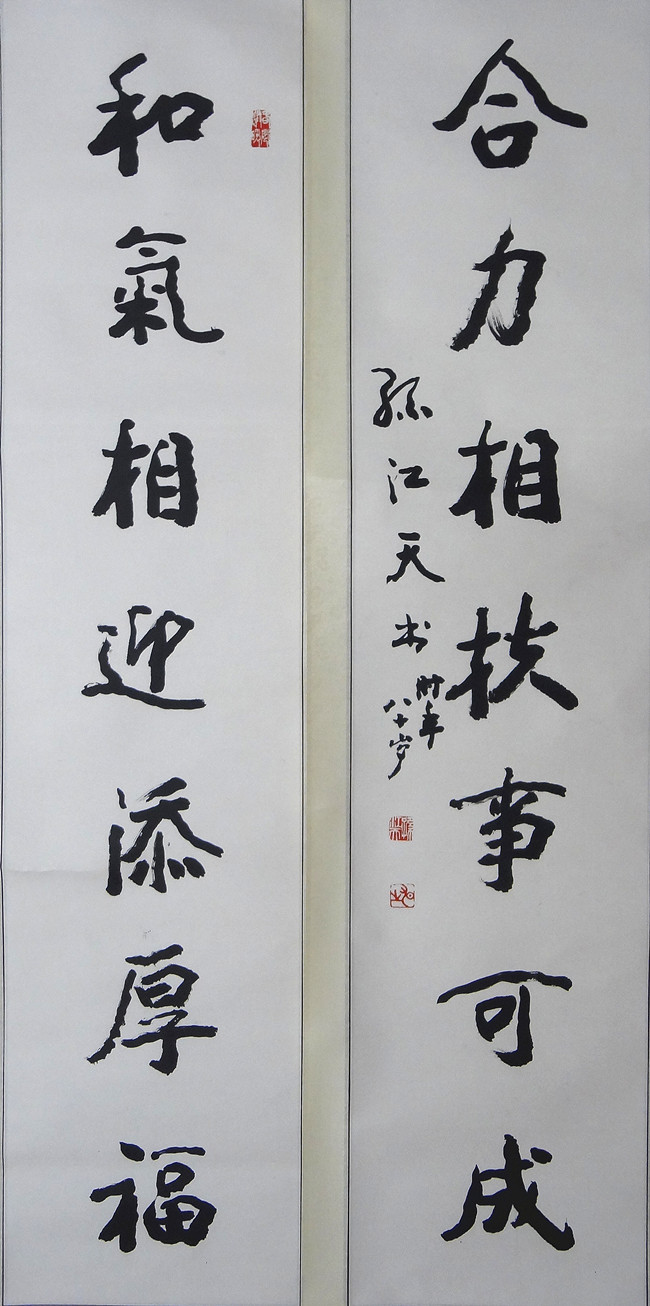 和氣相迎添厚福
合力相扶事可成
孫江天书
时年
八十岁